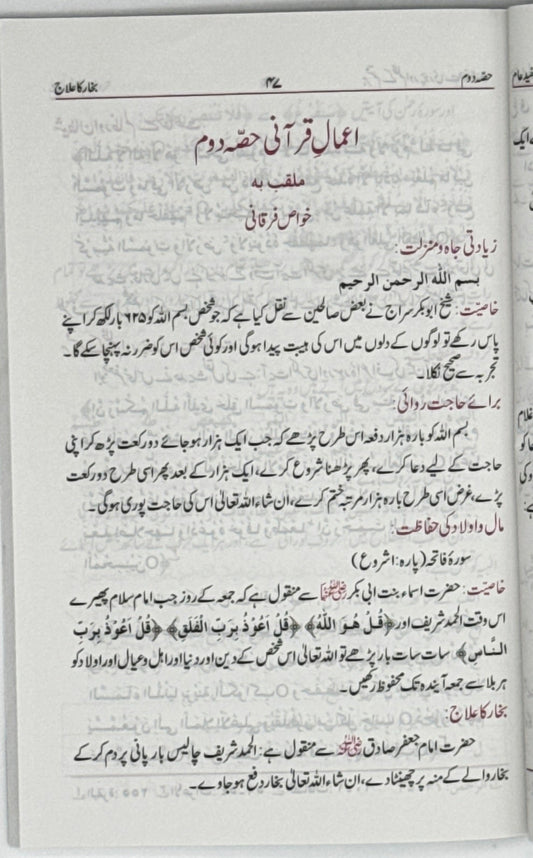 حصہ دوم ۴۷ بخار کا علاج
اعمالِ قرآنی حصّہ دوم
ملقب بہ
خواص فرقانی
زیادتی جاہ ومنزلت:
بسم اللہ الرحمن الرحیم
خاصیت: شیخ ابوبکر سراج نے بعض صالحین سے نقل کیا ہے کہ جو شخص بسم اللہ کو ۶۲۵ بار لکھ کر اپنے
پاس رکھے تو لوگوں کے دلوں میں اس کی ہیبت پیدا ہوگی اور کوئی شخص اس کو ضرر نہ پہنچا سکے گا۔
تجربہ سے صحیح نکلا۔
برائے حاجت روائی:
بسم اللہ کو بارہ ہزار دفعہ اس طرح پڑھے کہ جب ایک ہزار ہوجائے دو رکعت پڑھ کر اپنی
حاجت کے لیے دعا کرے، پھر پڑھنا شروع کرے، ایک ہزار کے بعد پھر اسی طرح دو رکعت
پڑے، غرض اسی طرح بارہ ہزار مرتبہ ختم کرے، ان شاء اللہ تعالیٰ اس کی حاجت پوری ہوگی۔
مال واولاد کی حفاظت:
سورۂ فاتحہ (پارہ: ا شروع)
خاصیّت: حضرت اسماء بنت ابی بکر رضی اللہ عنہما سے منقول ہے کہ جمعہ کے روز جب امام سلام پھیرے
اس وقت الحمد شریف اور ﴿قُلْ هُوَ اللّٰهُ﴾ ﴿قُلْ اَعُوْذُ بِرَبِّ الْفَلَقِ﴾ ﴿قُلْ اَعُوْذُ بِرَبِّ
النَّاسِ﴾ سات سات بار پڑھے تو اللہ تعالیٰ اس شخص کے دین اور دنیا اور اہل وعیال اور اولاد کو
ہر بلا سے جمعہ آیندہ تک محفوظ رکھیں۔
بخار کا علاج:
حضرت امام جعفر صادق رضی اللہ عنہ سے منقول ہے: الحمد شریف چالیس بار پانی پر دم کرکے
بخار والے کے منہ پر چھینٹا دے، ان شاء اللہ تعالیٰ بخار دفع ہوجاوے۔